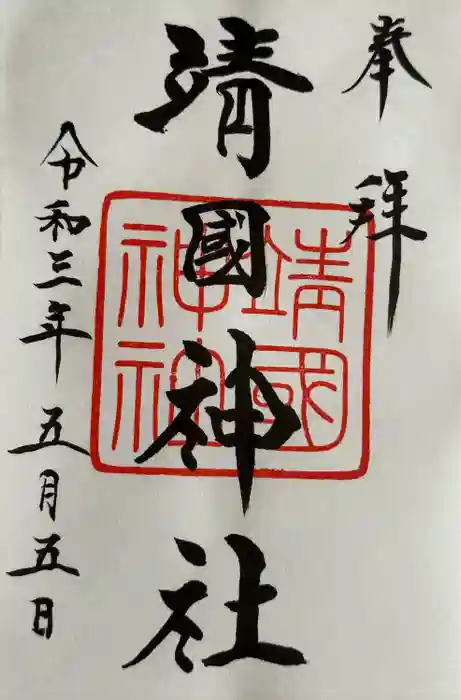 奉拝
靖國神社
令和三年五月五日
靖國
神社